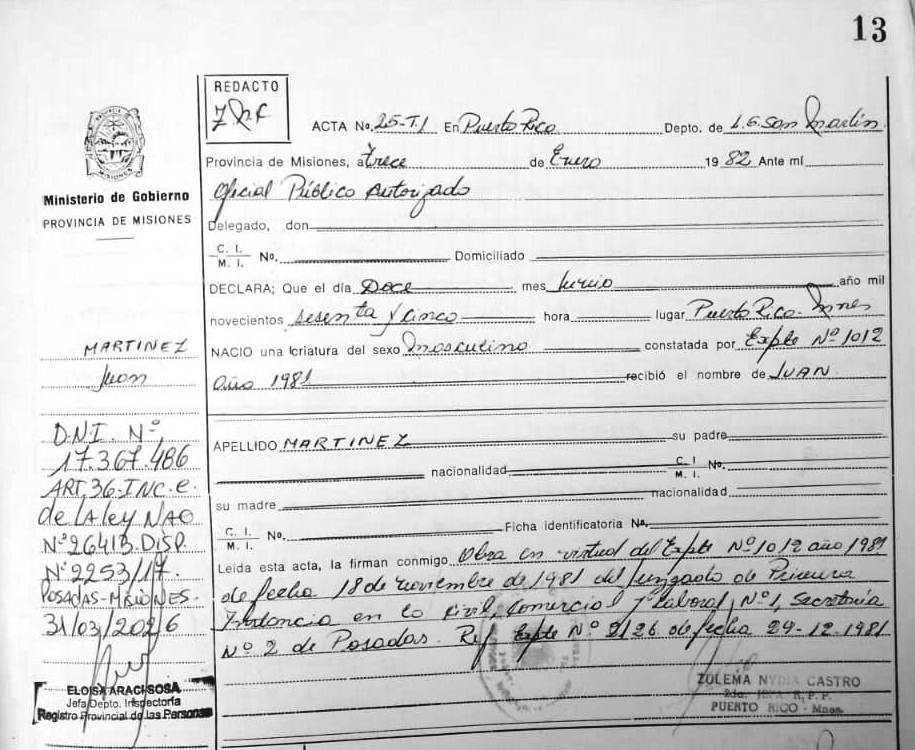 13
REDACTO
ACTA No. 25-T.1 En Puerto Rico Depto. de L.G. San Martín
Provincia de Misiones, a Trece de Enero 1982 Ante mí
Oficial Público Autorizado
Delegado, don
C. I.
M. I. No. Domiciliado
DECLARA; Que el día Doce mes Junio año mil
novecientos sesenta y cinco hora lugar Puerto Rico. Mnes
NACIO una criatura del sexo Masculino constatada por Expte Nº 1012
Año 1981 recibió el nombre de JUAN
APELLIDO MARTINEZ su padre
nacionalidad C. I. M. I. No.
su madre nacionalidad
C. I.
M. I. No. Ficha identificatoria No.
Leída esta acta, la firman conmigo Obra en virtud del Expte Nº 1012 año 1981
de fecha 18 de noviembre de 1981 del Juzgado de Primera
Instancia en lo Civil, Comercial y Laboral, Nº 1, Secretaría
Nº 2 de Posadas. Ref Expte Nº 2126 de fecha 29-12-1981
ZULEMA NYDIA CASTRO
PUERTO RICO - Mnes.
PROVINCIA
MISIONES
Ministerio de Gobierno
PROVINCIA DE MISIONES
MARTINEZ
Juan
D.N.I. Nº,
17.367.486
ART, 36-INC. e.
de LA ley NAC
Nº 26413. DISP.
Nº 2253/17.
POSADAS-MISIONES.
31/03/2026
ELOISA ARACI SOSA
Jefa Depto. Inspectoría
Registro Provincial de las Personas